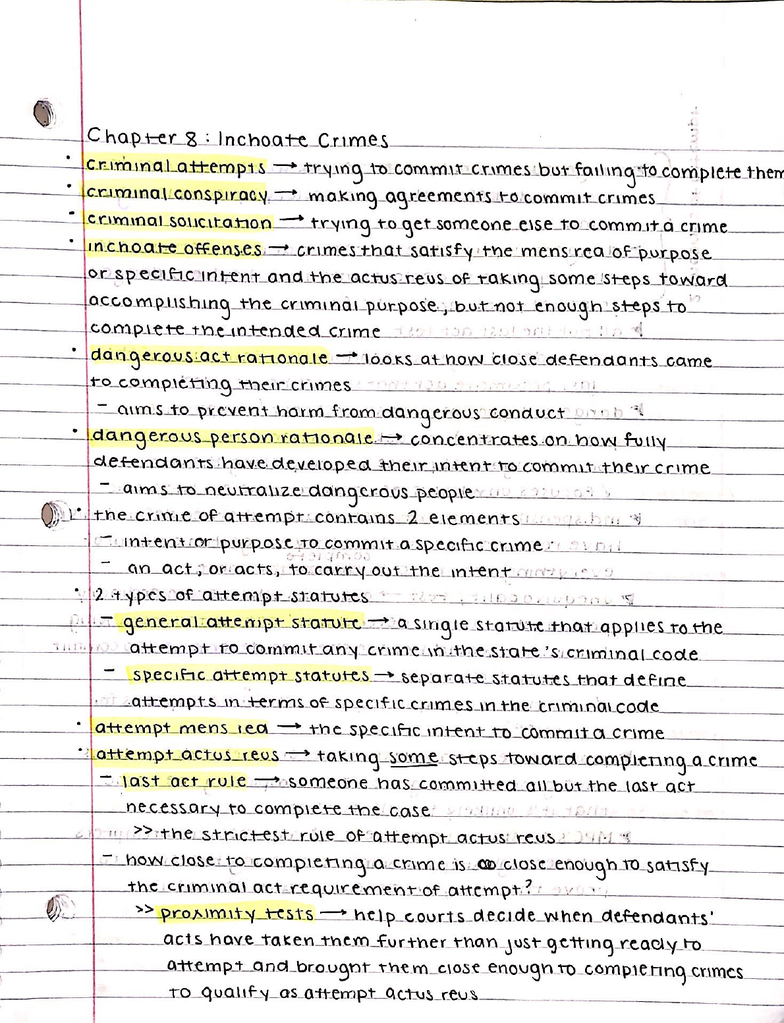 Chapter 8: Inchoate Crimes
• criminal attempts → trying to commit crimes but failing to complete them
• criminal conspiracy → making agreements to commit crimes
• criminal solicitation → trying to get someone else to commit a crime
• inchoate offenses → crimes that satisfy the mens rea of purpose
or specific intent and the actus reus of taking some steps toward
accomplishing the criminal purpose, but not enough steps to
complete the intended crime
• dangerous act rationale → looks at how close defendants came
to completing their crimes
- aims to prevent harm from dangerous conduct
• dangerous person rationale → concentrates on how fully
defendants have developed their intent to commit their crime
- aims to neutralize dangerous people
• the crime of attempt contains 2 elements
- intent or purpose to commit a specific crime
- an act, or acts, to carry out the intent
• 2 types of attempt statutes
- general attempt statute → a single statute that applies to the
attempt to commit any crime in the state's criminal code
- specific attempt statutes → separate statutes that define
attempts in terms of specific crimes in the criminal code
• attempt mens rea → the specific intent to commit a crime
• attempt actus reus → taking some steps toward completing a crime
- last act rule → someone has committed all but the last act
necessary to complete the case
>> the strictest rule of attempt actus reus
- how close to completing a crime is close enough to satisfy
the criminal act requirement of attempt?
>> proximity tests → help courts decide when defendants'
acts have taken them further than just getting ready to
attempt and brought them close enough to completing crimes
to qualify as attempt actus reus